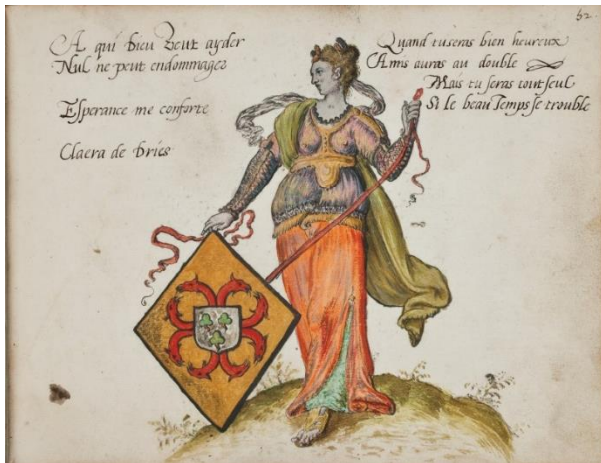 52
A qui Dieu veut ayder
Nul ne peut endommager
Esperance me conforte
Claera de Vries
Quand tu seras bien heureux
Amis auras au double
Mais tu seras tout seul
Si le beau Temps se trouble